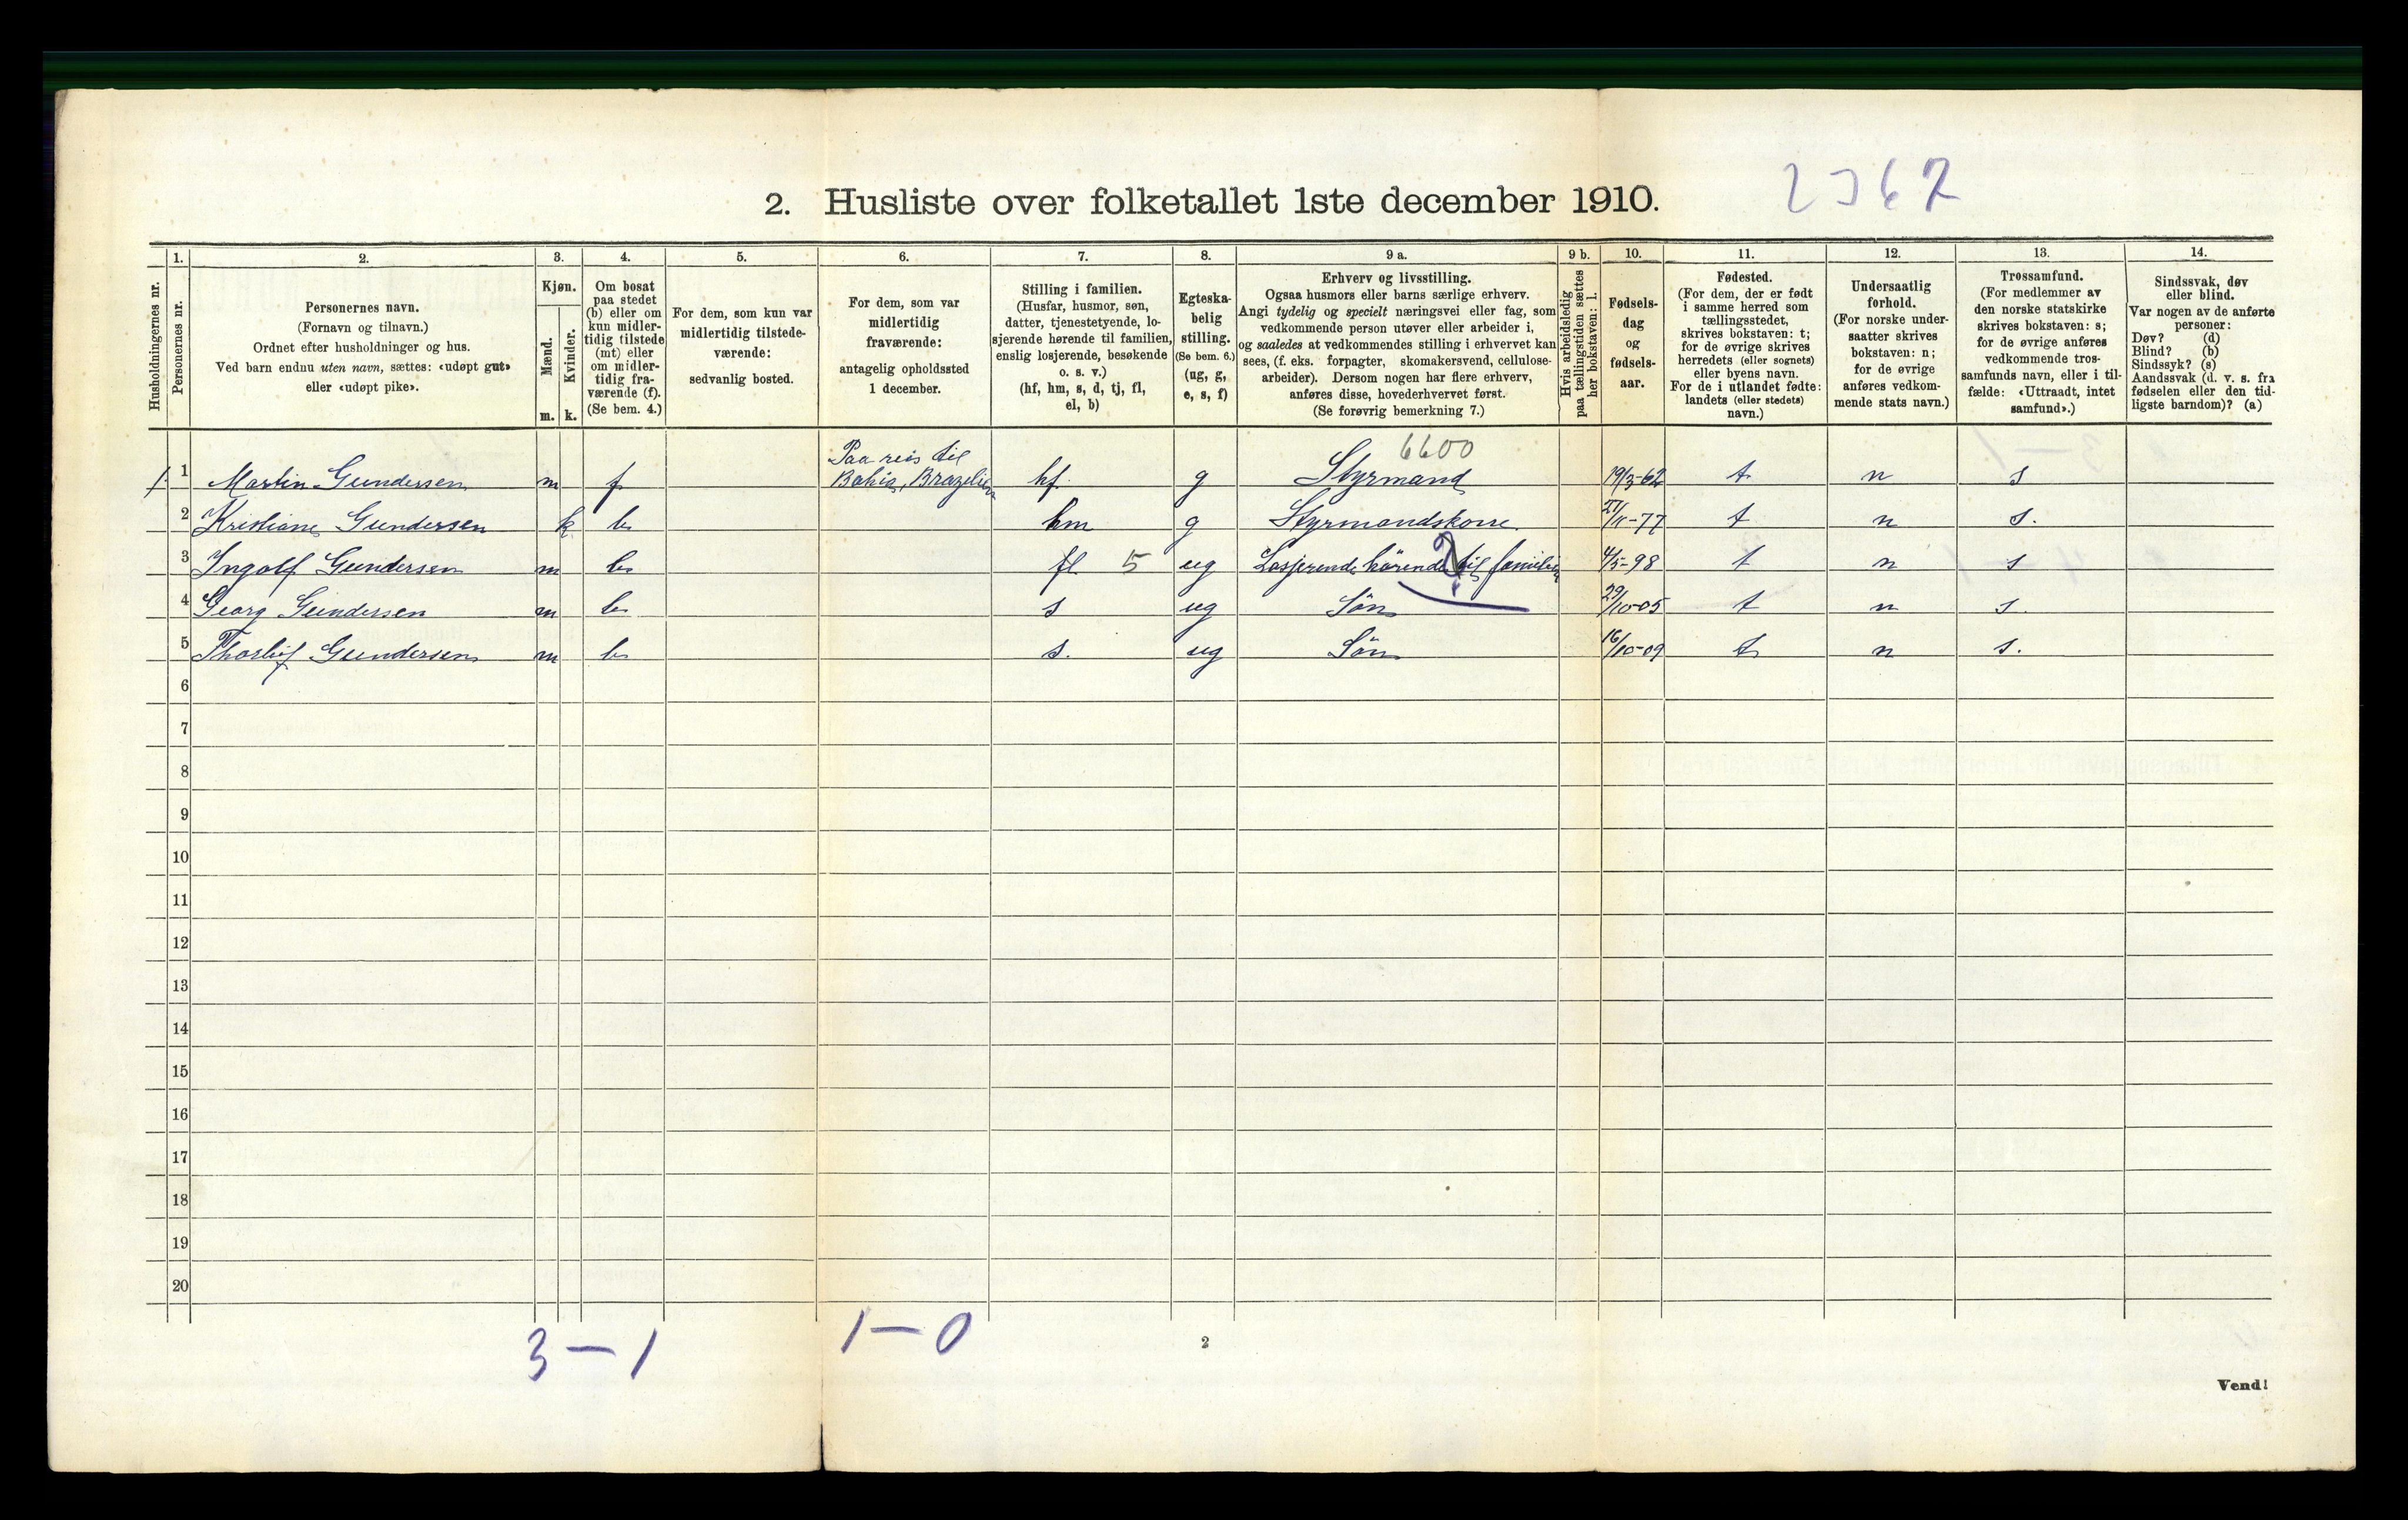 2. Husliste over folketallet 1ste december 1910.
2362
Husholdningernes nr.
1.
Personernes nr.
2.
Personernes navn.
(Fornavn og tilnavn.)
Ordnet efter husholdninger og hus.
Ved barn endnu uten navn, sættes: «udøpt gut»
eller «udøpt pike».
3.
Kjøn.
Mænd.
Kvinder.
m. k.
4.
Om bosat
paa stedet
(b) eller om
kun midler-
tidig tilstede
(mt) eller
om midler-
tidig fra-
værende (f).
(Se bem. 4.)
5.
For dem, som kun var
midlertidig tilstede-
værende:
sedvanlig bosted.
6.
For dem, som var
midlertidig
fraværende:
antagelig opholdssted
1 december.
7.
Stilling i familien.
(Husfar, husmor, søn,
datter, tjenestetyende, lo-
sjerende hørende til familien,
enslig losjerende, besøkende
o. s. v.)
(hf, hm, s, d, tj, fl,
el, b)
8.
Egteska-
belig
stilling.
(Se bem. 6.)
(ug, g,
e, s, f)
9 a.
Erhverv og livsstilling.
Ogsaa husmors eller barns særlige erhverv.
Angi tydelig og specielt næringsvei eller fag, som
vedkommende person utøver eller arbeider i,
og saaledes at vedkommendes stilling i erhvervet kan
sees, (f. eks. forpagter, skomakersvend, cellulose-
arbeider). Dersom nogen har flere erhverv,
anføres disse, hovederhvervet først.
(Se forøvrig bemerkning 7.)
9 b.
Hvis arbeidsledig
paa tællingstiden sættes
her bokstaven: l.
10.
Fødsels-
dag
og
fødsels-
aar.
11.
Fødested.
(For dem, der er født
i samme herred som
tællingsstedet,
skrives bokstaven: t;
for de øvrige skrives
herredets (eller sognets)
eller byens navn.
For de i utlandet fødte:
landets (eller stedets)
navn.)
12.
Undersaatlig
forhold.
(For norske under-
saatter skrives
bokstaven: n;
for de øvrige
anføres vedkom-
mende stats navn.)
13.
Trossamfund.
(For medlemmer av
den norske statskirke
skrives bokstaven: s;
for de øvrige anføres
vedkommende tros-
samfunds navn, eller i til-
fælde: «Uttraadt, intet
samfund».)
14.
Sindssvak, døv
eller blind.
Var nogen av de anførte
personer:
Døv? (d)
Blind? (b)
Sindssyk? (s)
Aandssvak (d. v. s. fra
fødselen eller den tid-
ligste barndom)? (a)
6600
Paa reis til
1. 1 Martin Gundersen m f Bahia, Brazelien hf. g Styrmand 19/3-62 t n s
2 Kristiane Gundersen k b hm g Styrmandskone. 21/11-77 t n s.
3 Ingolf Gundersen m b fl 5 ug Losjerende hörende til familien ? 4/5-98 t n s
4 Georg Gundersen m b s ug Sön 29/10-05 t n s.
5 Thorleif Gundersen m b s. ug Sön 16/10-09 t n s.
6
7
8
9
10
11
12
13
14
15
16
17
18
19
20
3-1 1-0
2
Vend!